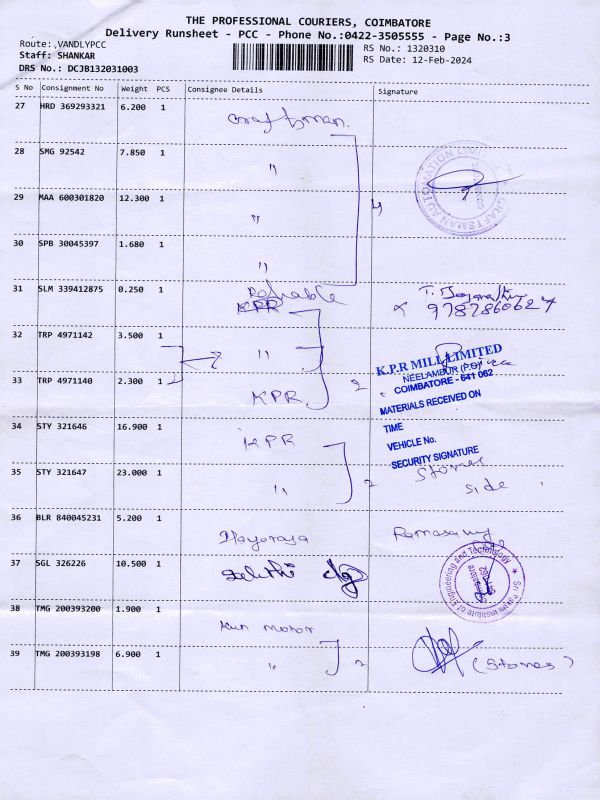 THE PROFESSIONAL COURIERS, COIMBATORE
Delivery Runsheet - PCC - Phone No.:0422-3505555 - Page No.:3
Route: ,VANDLYPCC
RS No.: 1320310
Staff: SHANKAR
RS Date: 12-Feb-2024
DRS No.: DCJB132031003
S No Consignment No Weight PCS Consignee Details Signature
27 HRD 369293321 6.200 1 Craftsman.
28 SMG 92542 7.850 1 "
29 MAA 600301820 12.300 1 " 4
30 SPB 30045397 1.680 1 "
CRAFTSMAN AUTOMATION LIMITED
31 SLM 339412875 0.250 1 Reliable
KPR
9787860627
32 TRP 4971142 3.500 1 "
2
33 TRP 4971140 2.300 1 KPR 2
K.P.R MILL LIMITED
NEELAMBUR (P.O)
COIMBATORE - 641 062
MATERIALS RECEIVED ON
TIME
VEHICLE No.
SECURITY SIGNATURE
34 STY 321646 16.900 1 KPR
35 STY 321647 23.000 1 " 2
Stores
side
36 BLR 840045231 5.200 1 Ramasamy
37 SGL 326226 10.500 1
Institute of Engineering and Technology
38 TMG 200393200 1.900 1 Kun motor
39 TMG 200393198 6.900 1 " 2 (Stores)